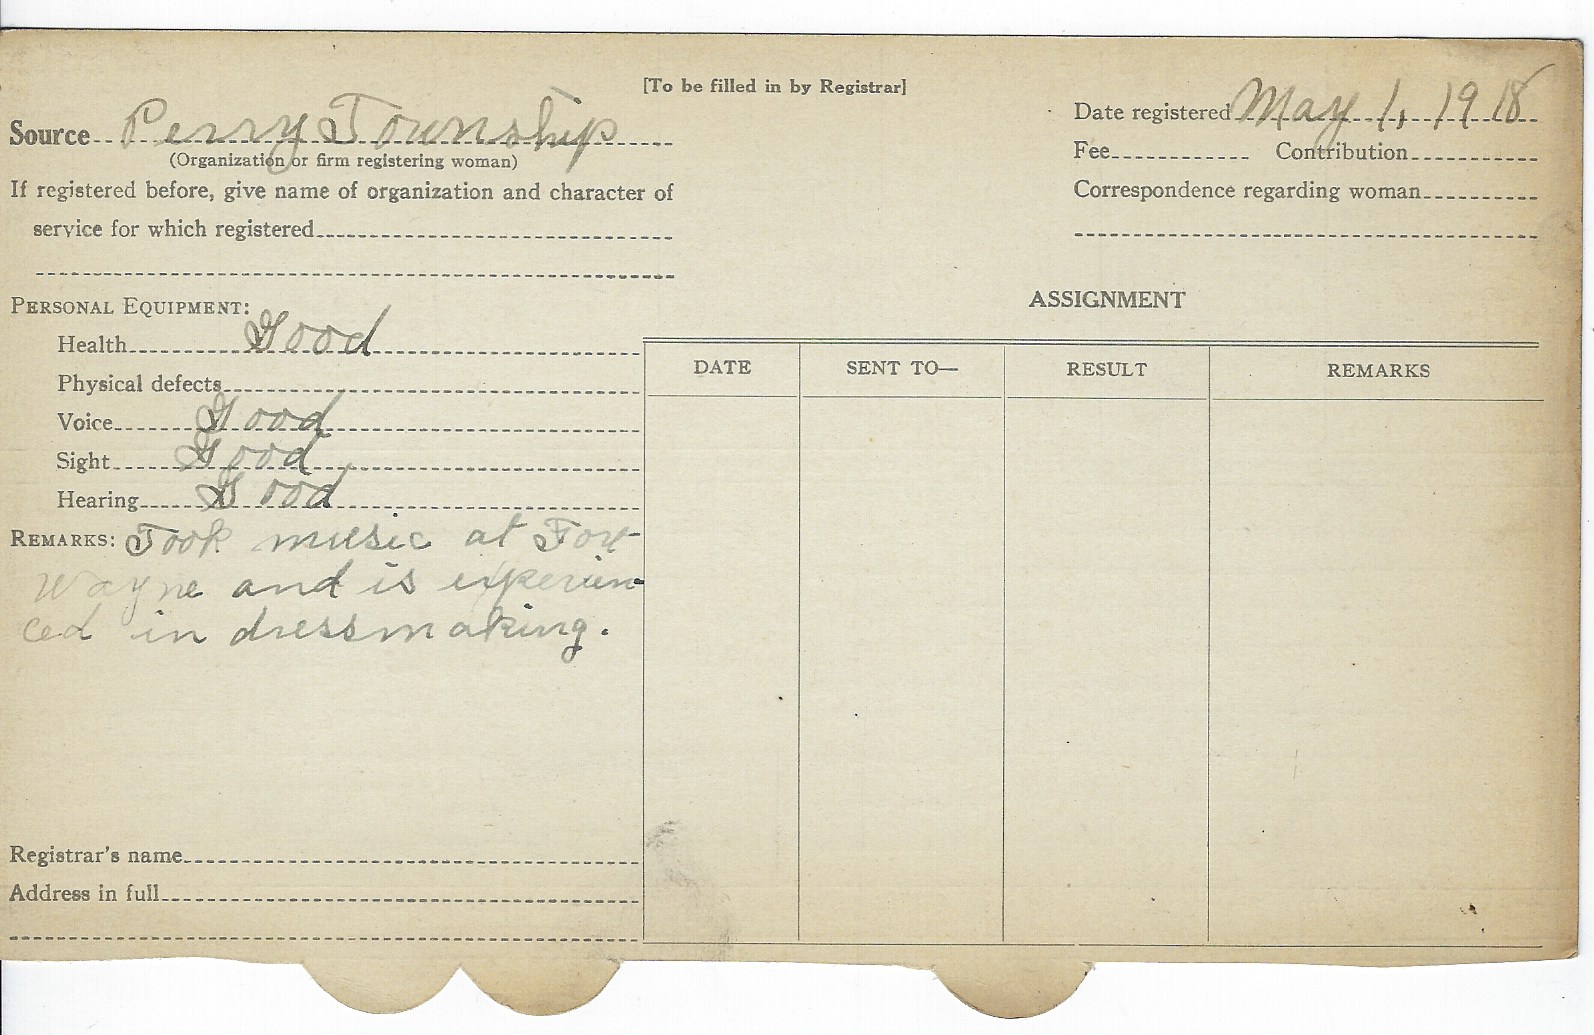 [To be filled in by Registrar]
Source Perry Township
(Organization or firm registering woman)
If registered before, give name of organization and character of
service for which registered
Date registered May 1, 1918
Fee Contribution
Correspondence regarding woman
PERSONAL EQUIPMENT:
Health Good
Physical defects
Voice Good
Sight Good
Hearing Good
REMARKS: Took music at Fort
Wayne and is experien-
ced in dressmaking.
Registrar's name
Address in full
ASSIGNMENT
DATE SENT TO— RESULT REMARKS